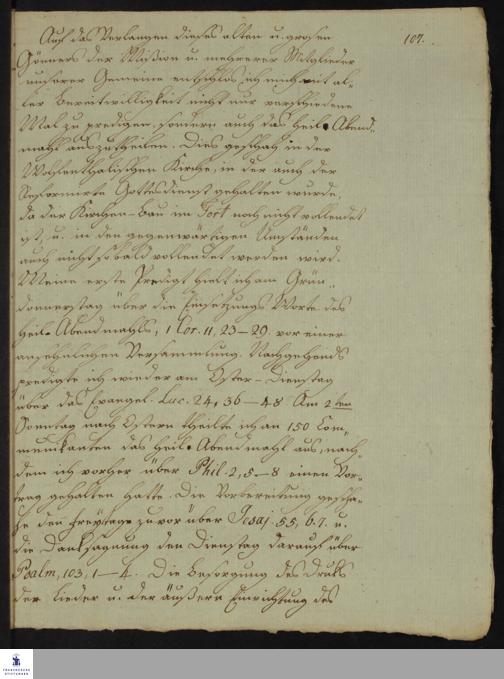 107.
Auf das Verlangen dieses alten u. grosen
Gönners der Mission u. mehrerer Mitglieder
unserer Gemeine entschloß ich mich mit al-
ler Bereitwilligkeit nicht nur verschiedene
Mal zu predigen, sondern auch das Heil. Abend-
mahl auszutheilen. Dies geschah in der
Wolfenthalischen Kirche, in der auch der
Reformirte Gottesdienst gehalten wurde,
da der Kirchen-bau im Fort noch nicht vollendet
ist, u. in den gegenwärtigen Umständen
auch nicht so bald vollendet werden wird.
Meine erste Predigt hielt ich am Grün-
donnerstag über die Einsetzungs Worte des
Heil. Abendmahls, 1 Cor. 11, 23-29. vor einer
ansehnlichen Versammlung. Nachgehends
predigte ich wieder am Oster-Dienstag
über das Evangel. Luc. 24, 36-48. Am 2ten
Sonntag nach Ostern theilte ich an 150 Com-
municanten das Heil. Abendmahl aus, nach-
dem ich vorher über Phil. 2, 5-8 einen Vor-
trag gehalten hatte. Die Vorbereitung gescha-
he den Freytag zuvor über Jesaj. 55, 6.7. u.
die Danksagung den Dienstag darauf über
Psalm, 103, 1-4. Die Besorgung des Druks
der Lieder u. der äußern Einrichtung des
FRANCKESCHE
STIFTUNGEN